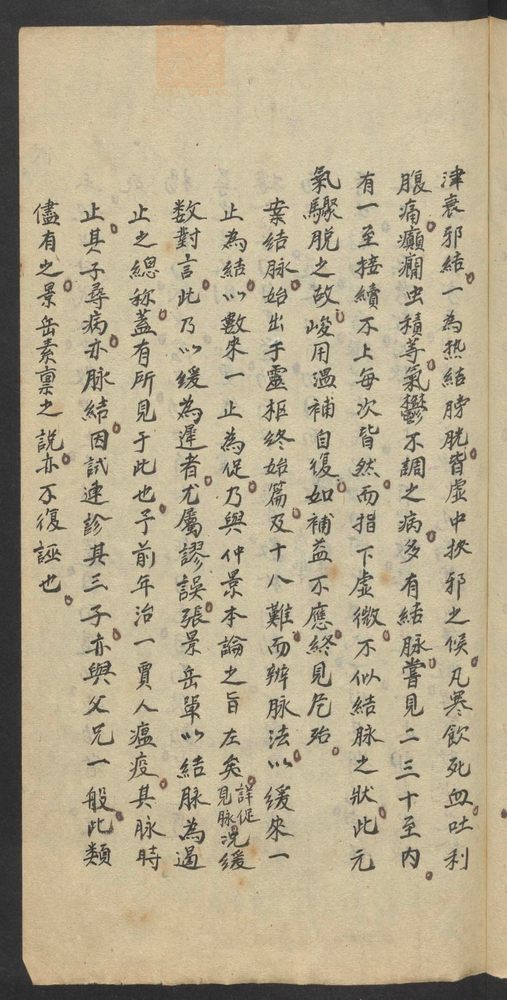 津衰邪結一為热結膀胱皆虛中挾邪之候凡寒飲死血吐利
腹痛癲癇虫積等氣鬱不調之病多有結脉嘗見二三十至内
有一至接續不上每次皆然而指下虛微不似結脉之狀此元
氣驟脫之故峻用溫補自復如補益不應終見危殆
案結脉始出于靈枢終始篇及十八難而辨脉法以緩來一
止為結以數來一止為促乃與仲景本論之旨左矣詳促見脉况緩
数對言此乃以緩為遲者尤屬謬誤張景岳單以結脉為過
止之總称蓋有所見于此也予前年治一賈人瘟疫其脉時
止其子尋病亦脉結因試連診其三子亦與父兄一般此類
儘有之景岳素禀之說亦不復誣也